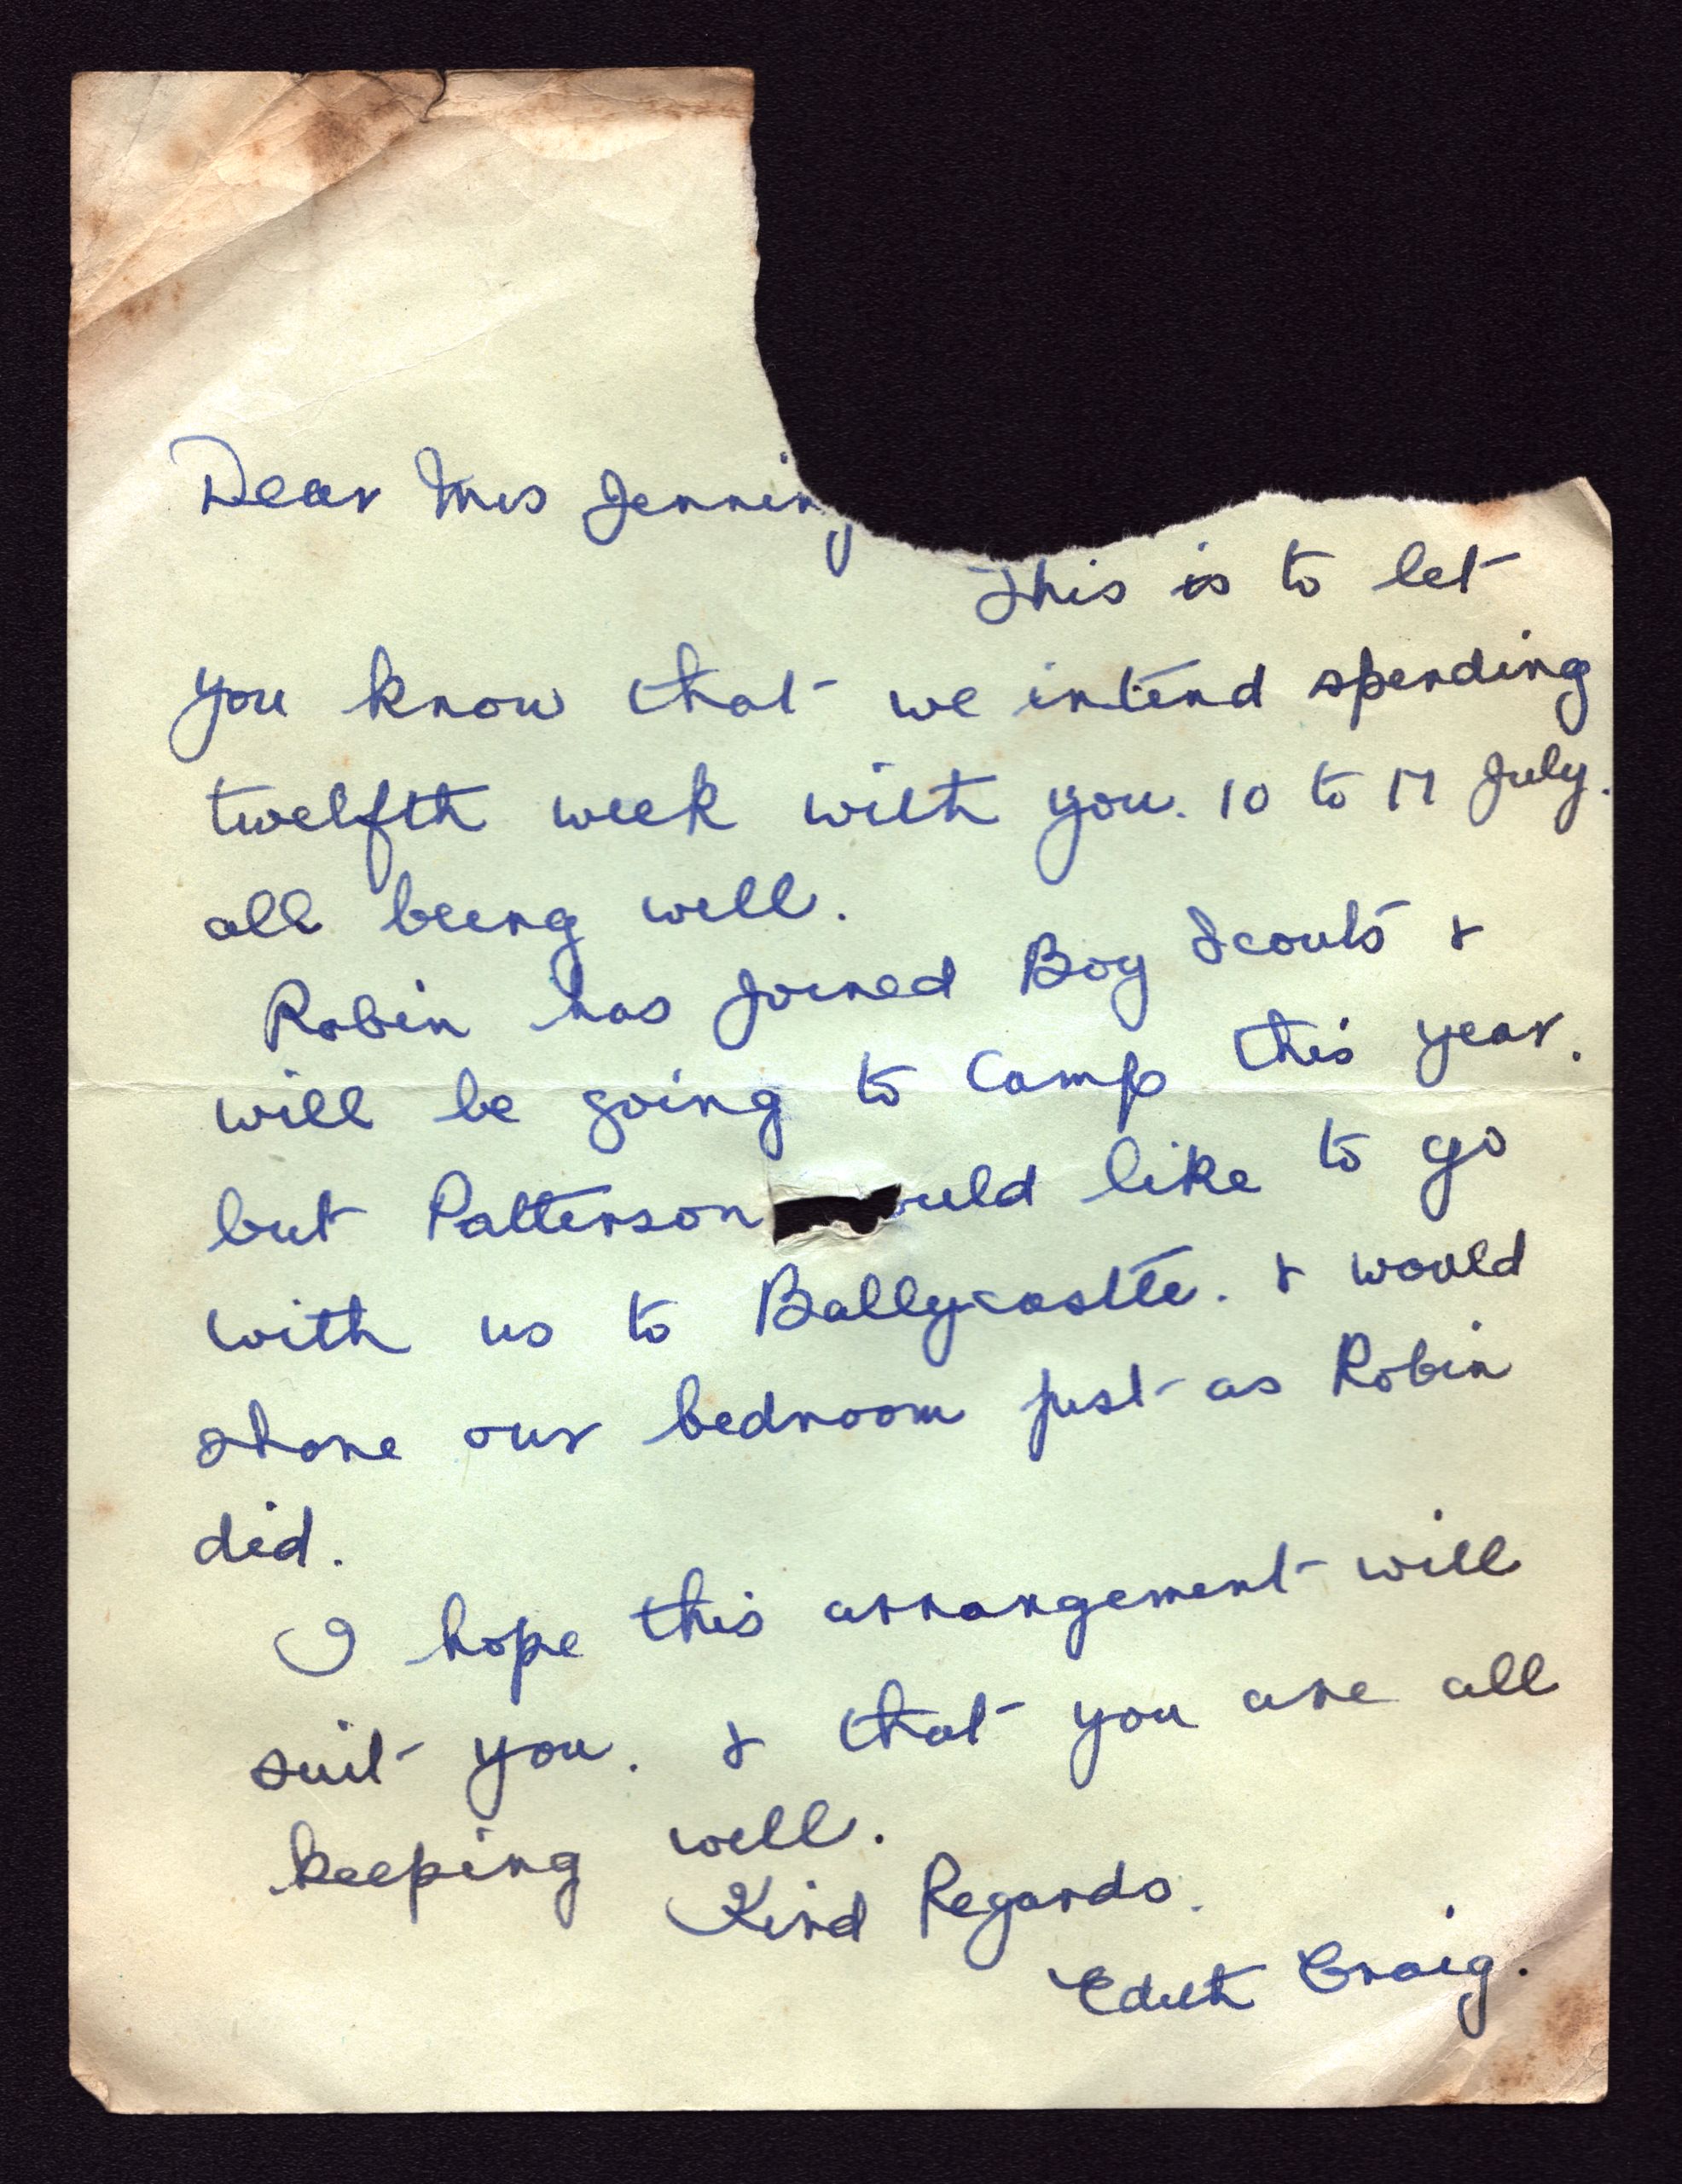 Dear Mrs Jenning
This is to let
you know that we intend spending
twelfth week with you. 10 to 17 July.
all being well.
Robin has joined Boy Scouts &
will be going to Camp this year.
but Patterson ould like to go
with us to Ballycastle. & would
share our bedroom just as Robin
did.
I hope this arrangement will
suit you. & that you are all
keeping well.
Kind Regards.
Edith Craig.